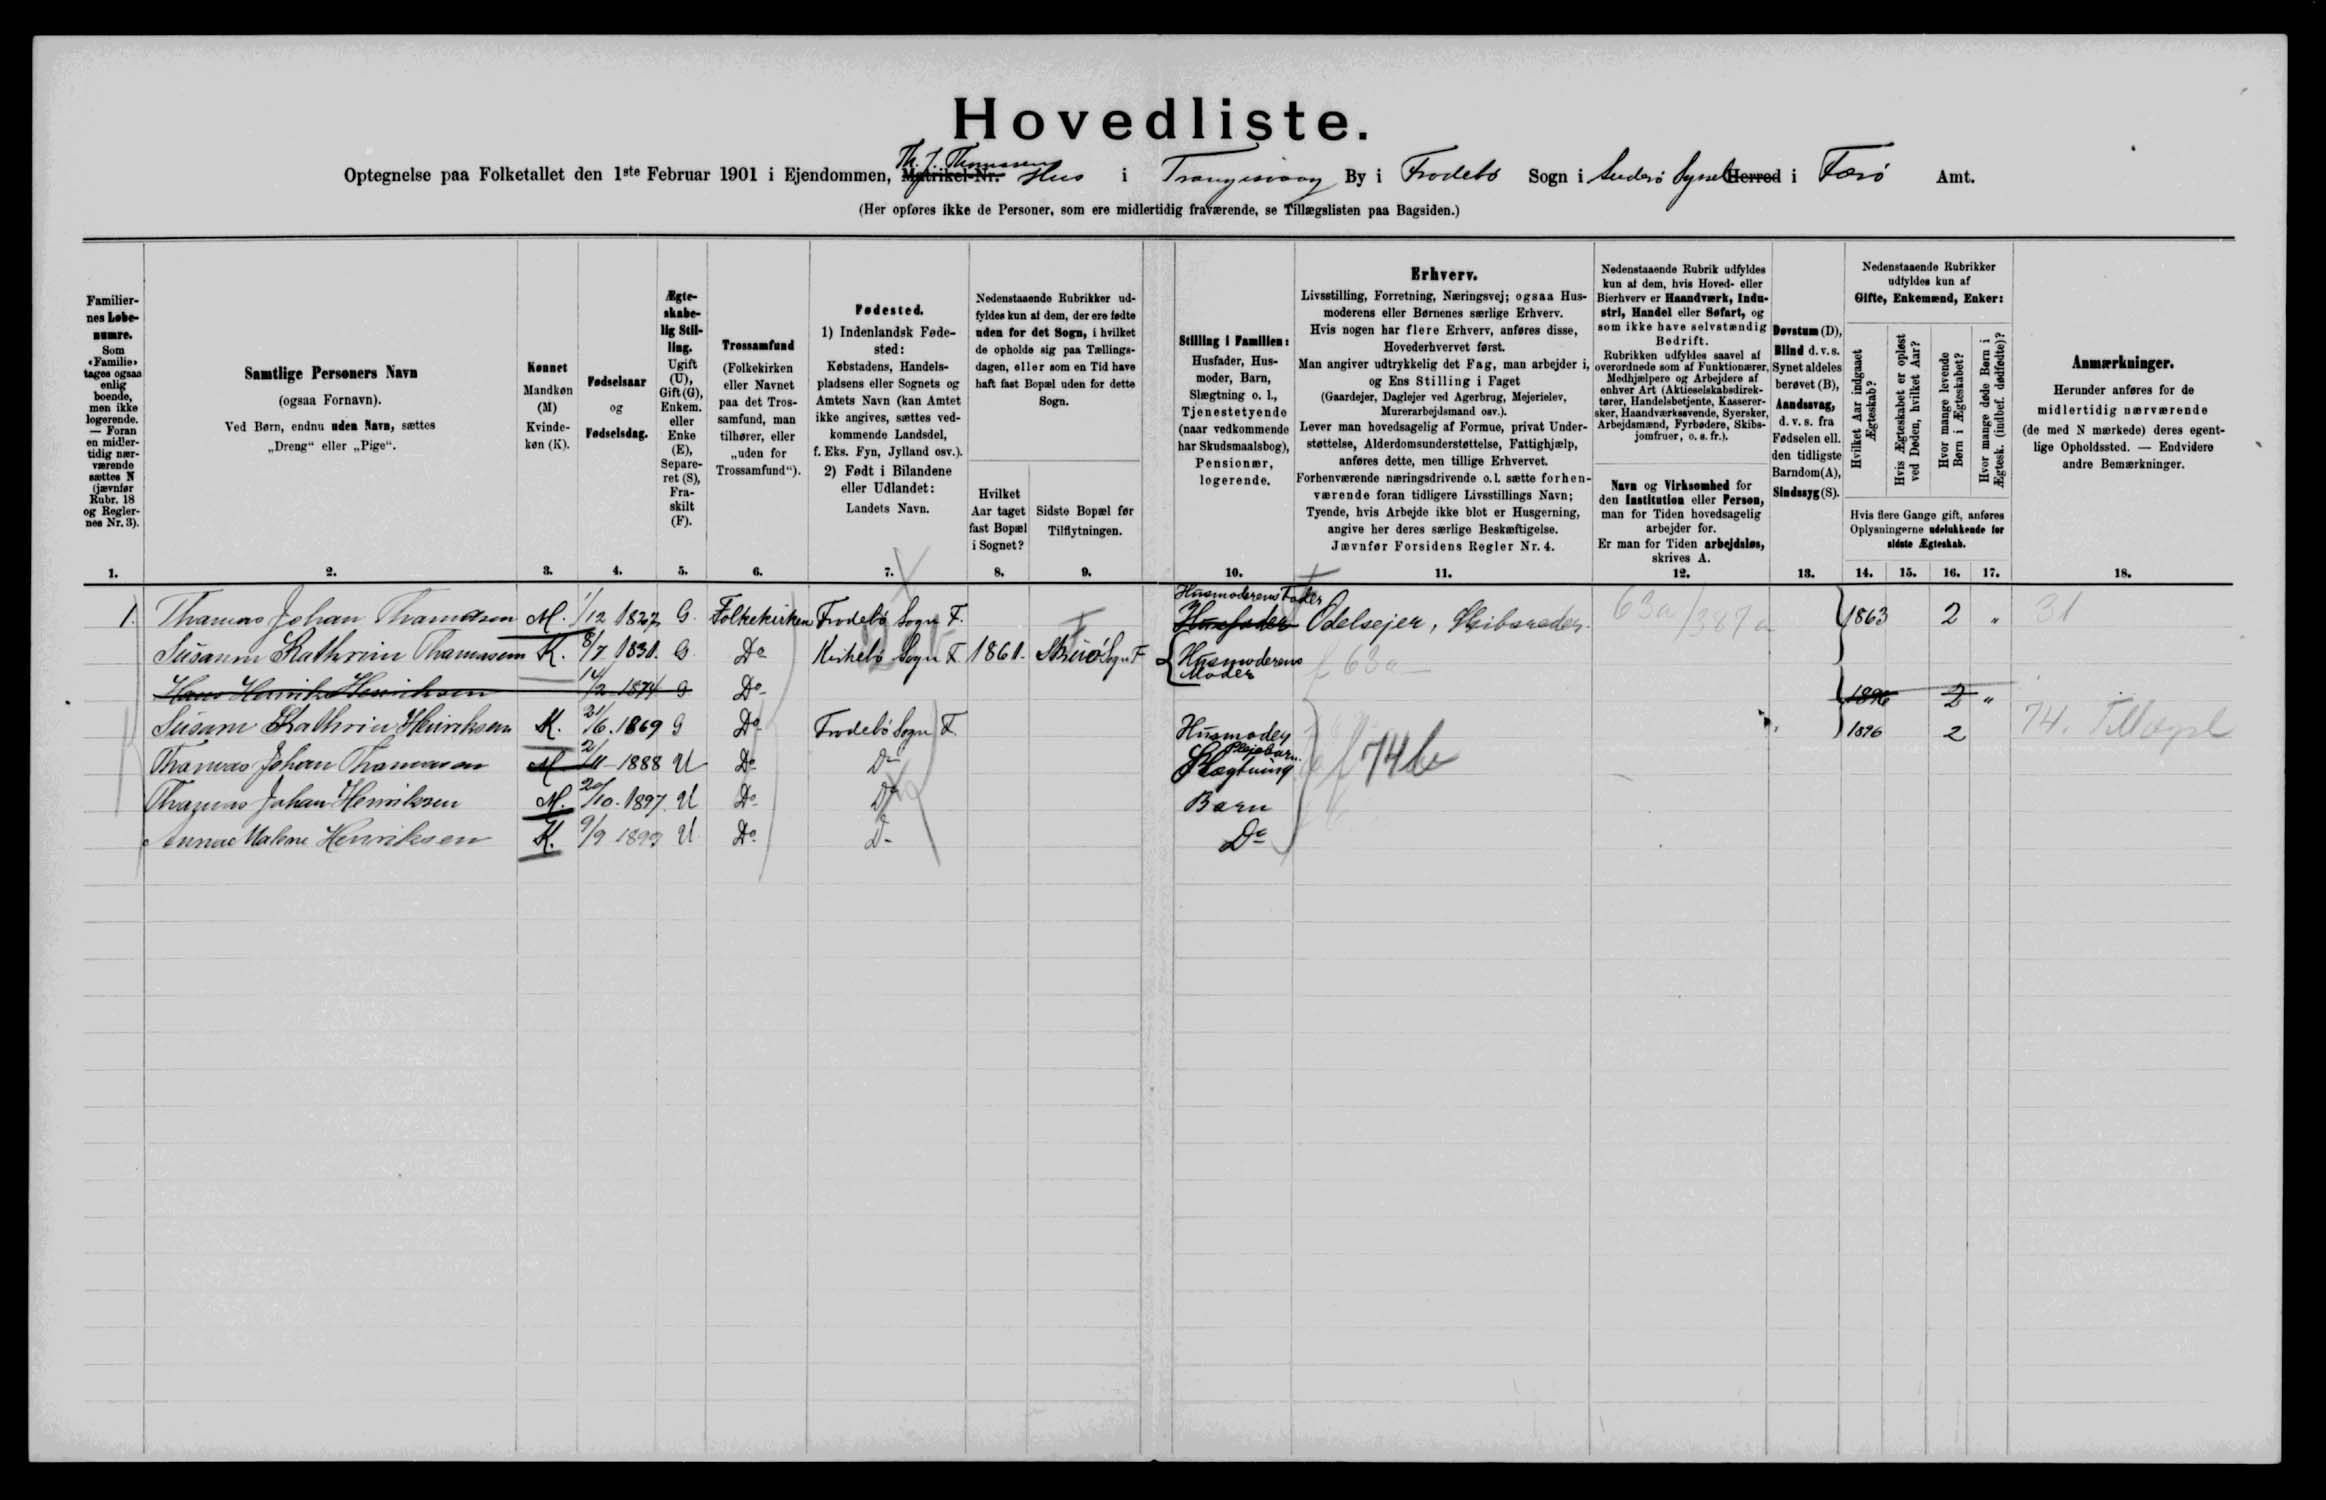 Hovedliste.
Optegnelse paa Folketallet den 1ste Februar 1901 i Ejendommen, Matrikel-Nr. Th. J. Thomassens Hus i Trangisvaag By i Frodebø Sogn i Suderø Syssel Herred i Færø Amt.
(Her opføres ikke de Personer, som ere midlertidig fraværende, se Tillægslisten paa Bagsiden.)
Familiernes Løbenumre.
Som «Familie» tages ogsaa enlig boende, men ikke logerende. — Foran en midlertidig nærværende sættes N (jævnfør Rubr. 18 og Reglernes Nr. 3).
Samtlige Personers Navn
(ogsaa Fornavn).
Ved Børn, endnu uden Navn, sættes
„Dreng“ eller „Pige“.
Kønnet
Mandkøn (M)
Kvindekøn (K).
Fødselsaar
og
Fødselsdag.
Ægteskabelig Stilling.
Ugift (U), Gift (G), Enkem. eller Enke (E), Separeret (S), Fraskilt (F).
Trossamfund
(Folkekirken eller Navnet paa det Trossamfund, man tilhører, eller „uden for Trossamfund“).
Fødested.
1) Indenlandsk Fødested:
Købstadens, Handelspladsens eller Sognets og Amtets Navn (kan Amtet ikke angives, sættes vedkommende Landsdel, f. Eks. Fyn, Jylland osv.).
2) Født i Bilandene eller Udlandet:
Landets Navn.
Nedenstaaende Rubrikker udfyldes kun af dem, der ere fødte uden for det Sogn, i hvilket de opholde sig paa Tællingsdagen, eller som en Tid have haft fast Bopæl uden for dette Sogn.
Hvilket Aar taget fast Bopæl i Sognet?
Sidste Bopæl før Tilflytningen.
Stilling i Familien:
Husfader, Husmoder, Barn, Slægtning o. l., Tjenestetyende (naar vedkommende har Skudsmaalsbog), Pensionær, logerende.
Erhverv.
Livsstilling, Forretning, Næringsvej; ogsaa Husmoderens eller Børnenes særlige Erhverv.
Hvis nogen har flere Erhverv, anføres disse, Hovederhvervet først.
Man angiver udtrykkelig det Fag, man arbejder i, og Ens Stilling i Faget
(Gaardejer, Daglejer ved Agerbrug, Mejerielev, Murerarbejdsmand osv.).
Lever man hovedsagelig af Formue, privat Understøttelse, Alderdomsunderstøttelse, Fattighjælp, anføres dette, men tillige Erhvervet.
Forhenværende næringsdrivende o. l. sætte forhenværende foran tidligere Livsstillings Navn;
Tyende, hvis Arbejde ikke blot er Husgerning, angive her deres særlige Beskæftigelse.
Jævnfør Forsidens Regler Nr. 4.
Nedenstaaende Rubrik udfyldes kun af dem, hvis Hoved- eller Bierhverv er Haandværk, Industri, Handel eller Søfart, og som ikke have selvstændig Bedrift.
Rubrikken udfyldes saavel af overordnede som af Funktionærer, Medhjælpere og Arbejdere af enhver Art (Aktieselskabsdirektører, Handelsbetjente, Kasserersker, Haandværkssvende, Syersker, Arbejdsmænd, Fyrbødere, Skibsjomfruer, o. s. fr.).
Navn og Virksomhed for den Institution eller Person, man for Tiden hovedsagelig arbejder for.
Er man for Tiden arbejdsløs, skrives A.
Døvstum (D), Blind d. v. s. Synet aldeles berøvet (B), Aandssvag, d. v. s. fra Fødselen ell. den tidligste Barndom (A), Sindssyg (S).
Nedenstaaende Rubrikker udfyldes kun af
Gifte, Enkemænd, Enker:
Hvilket Aar indgaaet Ægteskab?
Hvis Ægteskabet er opløst ved Døden, hvilket Aar?
Hvor mange levende Børn i Ægteskabet?
Hvor mange døde Børn i Ægtesk. (indbef. dødfødte)?
Hvis flere Gange gift, anføres Oplysningerne udelukkende for sidste Ægteskab.
Anmærkninger.
Herunder anføres for de midlertidig nærværende (de med N mærkede) deres egentlige Opholdssted. — Endvidere andre Bemærkninger.
1. 2. 3. 4. 5. 6. 7. 8. 9. 10. 11. 12. 13. 14. 15. 16. 17. 18.
1. Thomas Johan Thomassen M. 1/12 1827 G. Folkekirken Frodebø Sogn F. Husfader Husmoderens Fader Odelsejer, Skibsreder. 63a/387a 1863 2 „ 31
Susanne Kathrine Thomassen K. 8/7 1831. G. Do Kirkebø Sogn F. 1861. Skuø Sogn F Husmoderens Moder f 63a
Hans Henrik Henriksen 14/2 1874 G Do 1896 2 „
Susanne Kathrine Henriksen K. 21/6. 1869 G Do Frodebø Sogn F. Husmoder 1896 2 74. Tillægsl
Thomas Johan Thomassen M 2/11 1888 U Do Do Slægtning Plejebarn f 74b
Thomas Johan Henriksen M. 20/10. 1897. U Do Do Barn
Anna Malene Henriksen K. 9/9 1899 U Do Do Do